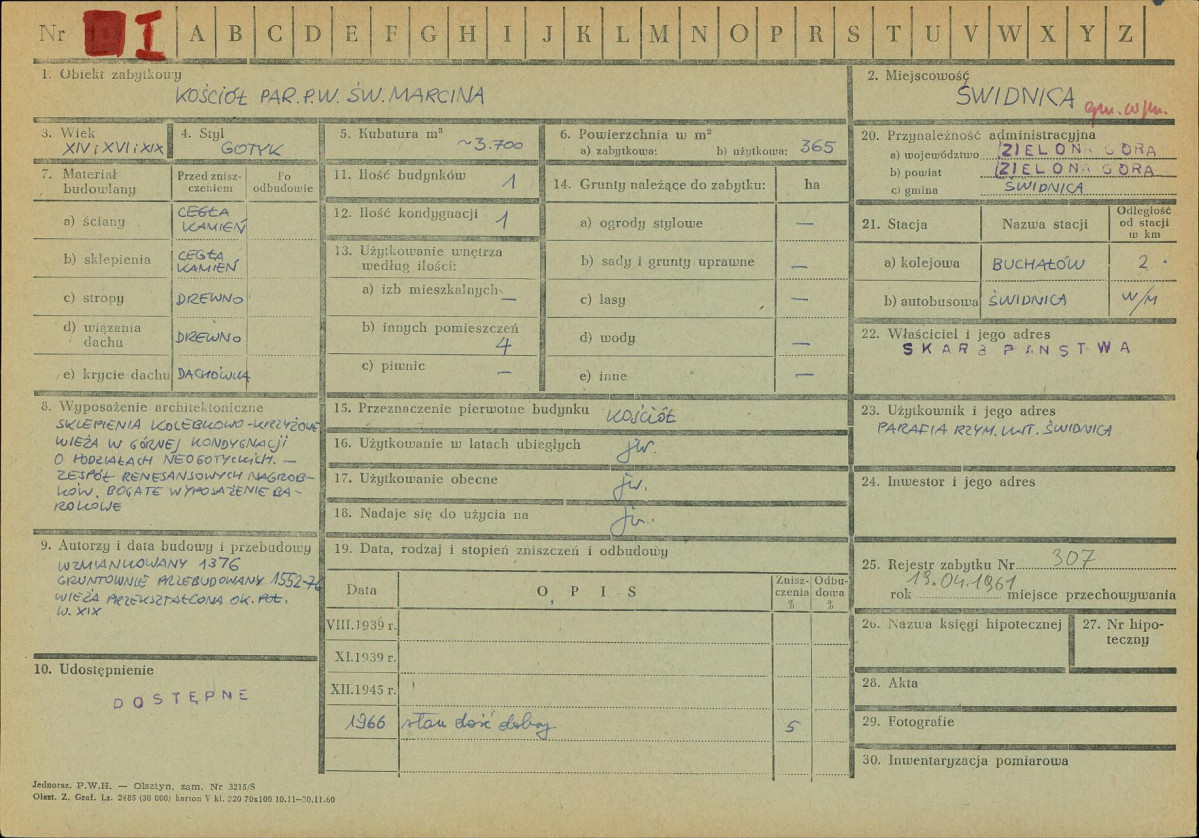 Nr I A B C D E F G H I J K L M N O P R S T U V W X Y Z
1. Obiekt zabytkowy
KOŚCIÓŁ PAR. P.W. ŚW. MARCINA
2. Miejscowość
ŚWIDNICA
gm. w/m.
3. Wiek
XIV i XVI i XIX
4. Styl
GOTYK
5. Kubatura m³
~3.700
6. Powierzchnia w m²
a) zabytkowa: b) użytkowa: 365
7. Materiał budowlany
Przed zniszczeniem
Po odbudowie
a) ściany CEGŁA KAMIEŃ
b) sklepienia CEGŁA KAMIEŃ
c) stropy DREWNO
d) wiązania dachu DREWNO
e) krycie dachu DACHÓWKA
8. Wyposażenie architektoniczne
SKLEPIENIA KOLEBKOWO-KRZYŻOWE
WIEŻA W GÓRNEJ KONDYGNACJI
O PODZIAŁACH NEOGOTYCKICH. —
ZESPÓŁ RENESANSOWYCH NAGROB-
KÓW. BOGATE WYPOSAŻENIE BA-
ROKOWE
9. Autorzy i data budowy i przebudowy
WZMIANKOWANY 1376
GRUNTOWNIE PRZEBUDOWANY 1552-76
WIEŻA PRZEKSZTAŁCONA OK. POŁ.
W. XIX
10. Udostępnienie
DOSTĘPNE
11. Ilość budynków 1
12. Ilość kondygnacji 1
13. Użytkowanie wnętrza
według ilości:
a) izb mieszkalnych —
b) innych pomieszczeń 4
c) piwnic —
14. Grunty należące do zabytku: ha
a) ogrody stylowe —
b) sady i grunty uprawne —
c) lasy —
d) wody —
e) inne —
15. Przeznaczenie pierwotne budynku KOŚCIÓŁ
16. Użytkowanie w latach ubiegłych jw.
17. Użytkowanie obecne jw.
18. Nadaje się do użycia na jw.
19. Data, rodzaj i stopień zniszczeń i odbudowy
Data OPIS Zniszczenia % Odbudowa %
VIII.1939 r.
XI.1939 r.
XII.1945 r.
1966 stan dość dobry 5
20. Przynależność administracyjna
a) województwo ZIELONA GÓRA
b) powiat ZIELONA GÓRA
c) gmina ŚWIDNICA
21. Stacja Nazwa stacji Odległość od stacji w km
a) kolejowa BUCHAŁÓW 2
b) autobusowa ŚWIDNICA W/M
22. Właściciel i jego adres
SKARB PAŃSTWA
23. Użytkownik i jego adres
PARAFIA RZYM. KAT. ŚWIDNICA
24. Inwestor i jego adres
25. Rejestr zabytku Nr 307
rok 19.04.1961 miejsce przechowywania
26. Nazwa księgi hipotecznej
27. Nr hipoteczny
28. Akta
29. Fotografie
30. Inwentaryzacja pomiarowa
Jednoraz. P.W.H. — Olsztyn, zam. Nr 3215/S
Olszt. Z. Graf. Lz. 2485 (30 000) karton V kl. 220 70x100 10.11—30.11.60